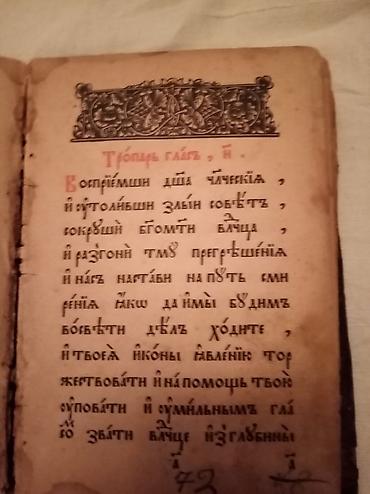 Тропарь гласъ , и҃ .
Воспрїе́мши дш҃а чл҃ческїѧ ,
и҆ ѹ҆толи́вши злы́и совѣ́тъ ,
сокрꙋшѝ бг҃омт҃и влⷣчца ,
и҆ разгонѝ тмꙋ̀ прегрѣше́нїѧ
и҆ на́съ наста́ви на пꙋ́ть сми
ре́нїѧ ꙗ҆́кѡ да и҆ мы̀ бꙋ́димъ
во свѣ́ти дѣ́лъ ходи́те ,
и҆ твоеѧ̀ и҆ко́ны ꙗ҆вле́нїю тор
жествова́ти и҆ на по́мощь твою̀
ѹ҆пова́ти и҆ ѹ҆ми́льнымъ гла
со́ зва́ти влⷣчце и҆з̾ глꙋбины̀
а҃ а҃
42